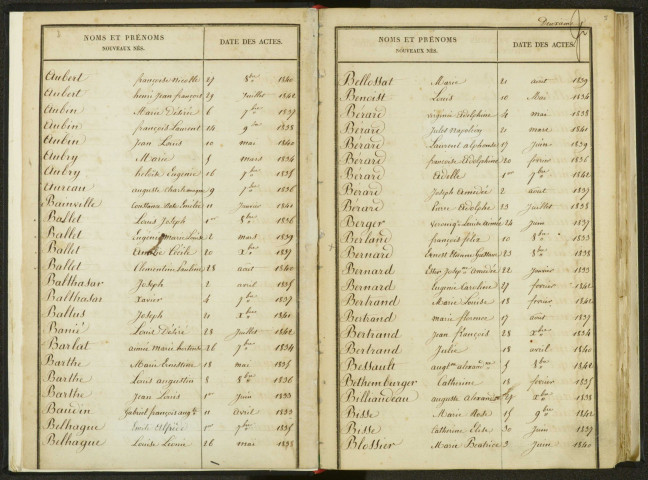 NOMS ET PRÉNOMS
NOUVEAUX NÉS.
DATE DES ACTES.
Aubert françoise nicolle 27 8bre 1840
Aubert henri Jean françois 29 Juillet 1842
Aubin Marie Désirée 6 7bre 1837
Aubin françois Laurent 14 9bre 1838
Aubin Jean Louis 10 mai 1840
Aubry Marie 5 mars 1834
Aubry Eugénie 16 7bre 1835
Aureau auguste Charlemagne 9 7bre 1836
Bainville Constance Emélie 11 Janvier 1840
Ballet Louis Joseph 1er 8bre 1836
Ballet Eugénie Marie Louise 2 mars 1839
Ballet Cécile 20 Xbre 1837
Ballet Clémentine Pauline 28 aout 1840
Balthasar Joseph 2 avril 1835
Balthasar Xavier 4 7bre 1837
Baltus Joseph 21 Xbre 1841
Banié Louis Désiré 23 Juillet 1842
Barlat aimée marie 26 7bre 1834
Barthe Marie Ernestine 18 mai 1835
Barthe Louis augustin 8 8bre 1836
Barthe Jean Louis 1er Juin 1833
Baudin Gabriel françois 11 Avril 1833
Belhague Emile Alfred 1er 7bre 1835
Belhague Louise Leonie 26 mai 1838
Deuxième
NOMS ET PRÉNOMS
NOUVEAUX NÉS.
DATE DES ACTES.
Bellossat Marie 21 aout 1839
Benoist Louis 10 Mai 1834
Bérard virginie Edelphine 4 mai 1838
Bérard Jules napoléon 21 mars 1841
Bérard Laurent alphonse 19 Juin 1839
Bérard françoise Edelphine 20 fevrier 1836
Bérard Edelle 1er 7bre 1842
Bérard Joseph Amédée 2 avril 1837
Bérard Pierre Edelphe 23 Juillet 1838
Berger Louise Aimée 24 Juin 1837
Berland françois félix 10 8bre 1833
Bernard Ernest Etienne 23 8bre 1838
Bernard Amédée 22 Janvier 1833
Bernard Eugenie Caroline 27 fevrier 1842
Bertrand Marie Louise 18 fevrier 1842
Bertrand marie florence 17 aout 1837
Bertrand Jean françois 28 Xbre 1834
Bertrand Julie 18 avril 1840
Bessault 5 8bre 1842
Bethemburger Catherine 13 fevrier 1835
Bilhaudeau auguste Alexandre 27 Xbre 1838
Bisse Marie Rose 15 9bre 1842
Bisse Catherine Elise 30 Juin 1837
Blossier Marie Beatrice 3 Juin 1840